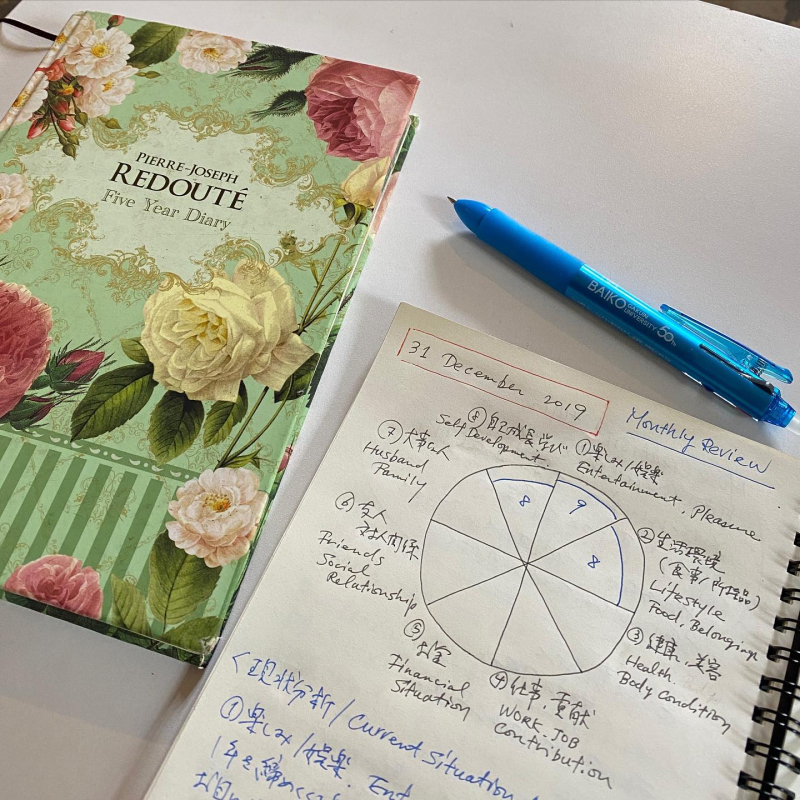 PIERRE-JOSEPH
REDOUTÉ
Five Year Diary
BAIKO GAKUIN
UNIVERSITY 50th
31 December 2019
Monthly Review
⑧自己成長 学び
Self Development
①楽しみ/娯楽
Entertainment, Pleasure
②生活環境
(食事/所持品)
Lifestyle
Food, Belongings
③健康、美容
Health
Body Condition
④仕事、貢献
WORK・JOB
Contribution
⑤お金
Financial
Situation
⑥友人
対人関係
Friends
Social
Relationship
⑦大事な人
Husband
Family
8
9
8
<現状分析/Current Situation
①楽しみ/娯楽. Ent
1年を締めくくる